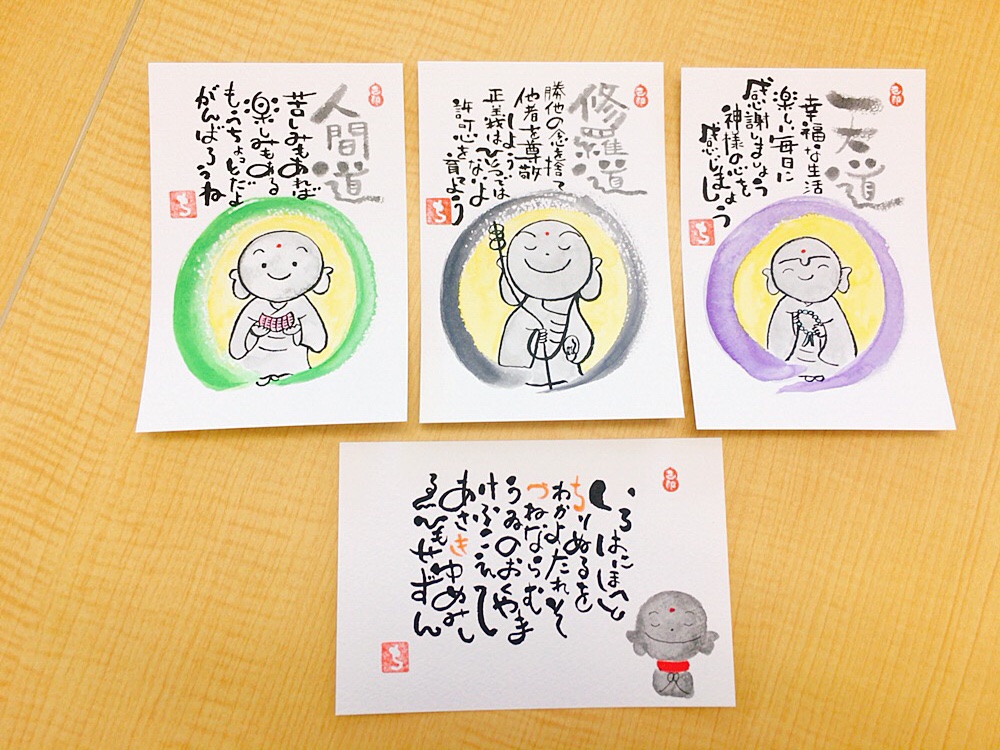 人間道
苦しみもあれば
楽しみもある
もうちょっとだよ
がんばろうね
ち
修羅道
勝他の念を捨て
他者を尊敬
しよう
正義はひとつでは
ないよ
許す心を育よう
ち
天道
幸福な生活
楽しい毎日に
感謝しましょう
神様の心を
感じましょう
ち
いろはにほへと
ちりぬるを
わかよたれそ
つねならむ
うゐのおくやま
けふこえて
あさきゆめみし
ゑひもせずん
ち